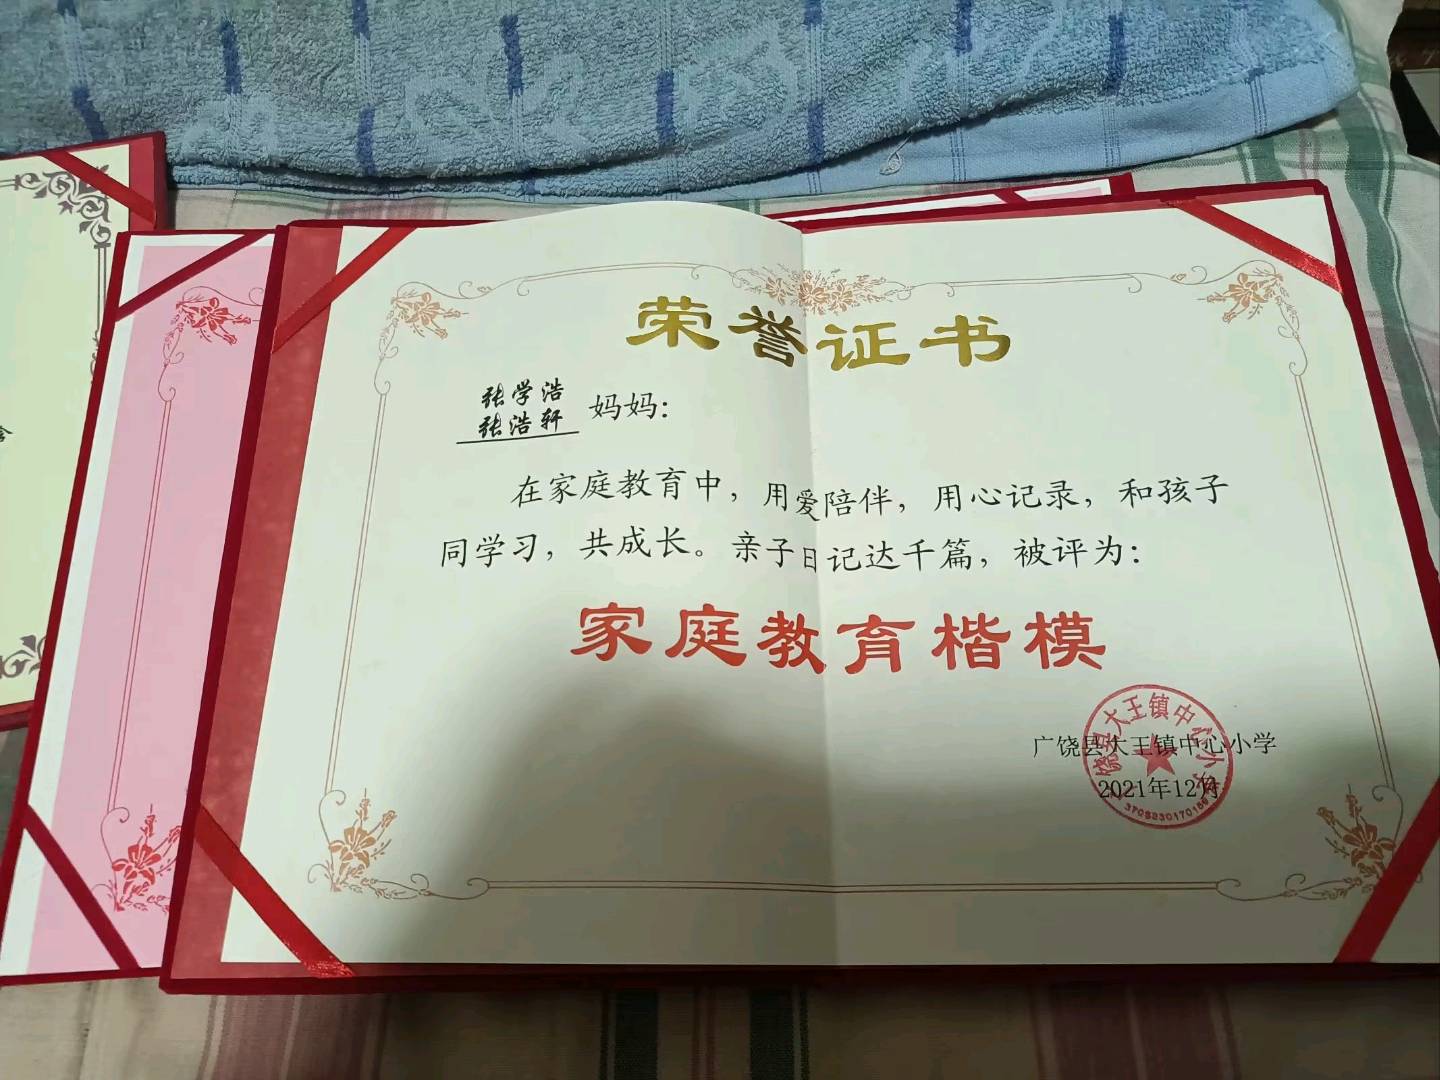 荣誉证书
张学浩
张浩轩 妈妈：
在家庭教育中，用爱陪伴，用心记录，和孩子
同学习，共成长。亲子日记达千篇，被评为：
家庭教育楷模
广饶县大王镇中心小学
2021年12月